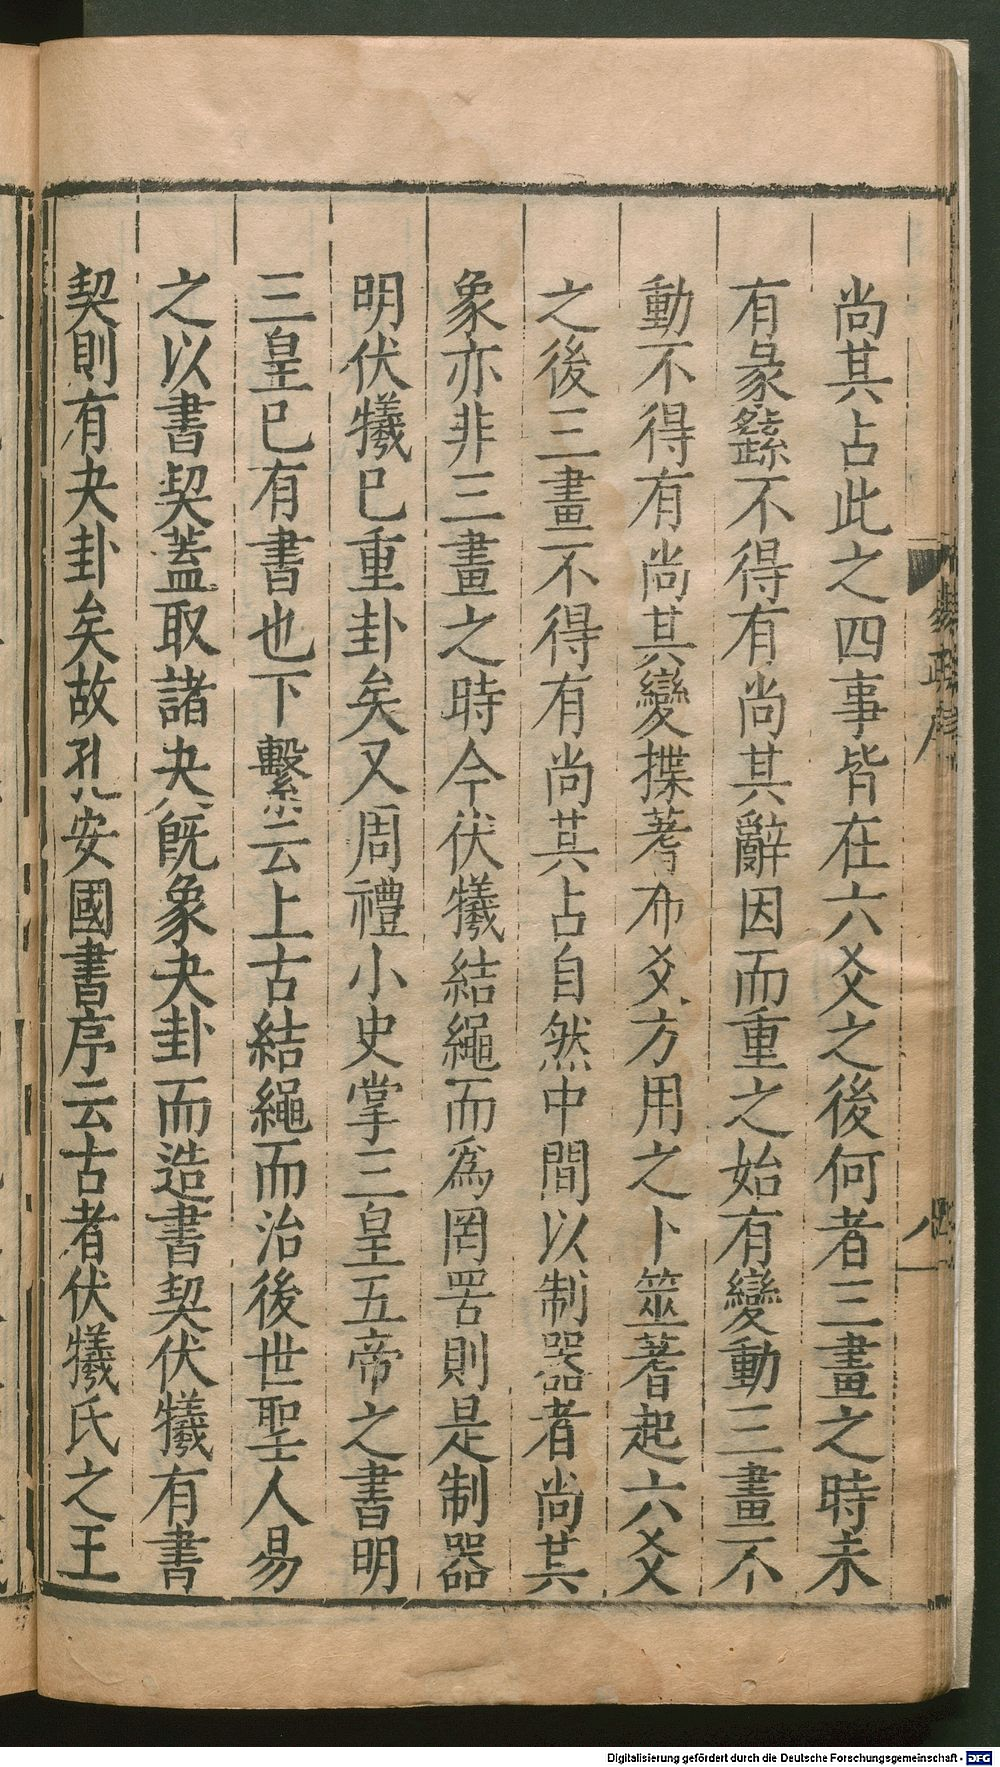 尚其占此之四事皆在六爻之後何者三畫之時未
有彖繇不得有尚其辭因而重之始有變動三畫不
動不得有尚其變揲蓍布爻方用之卜筮蓍起六爻
之後三畫不得有尚其占自然中間以制器者尚其
象亦非三畫之時今伏犧結繩而爲罔罟則是制器
明伏犧已重卦矣又周禮小史掌三皇五帝之書明
三皇已有書也下繫云上古結繩而治後世聖人易
之以書契蓋取諸夬旣象夬卦而造書契伏犧有書
契則有夬卦矣故孔安國書序云古者伏犧氏之王
Digitalisierung gefördert durch die Deutsche Forschungsgemeinschaft - DFG